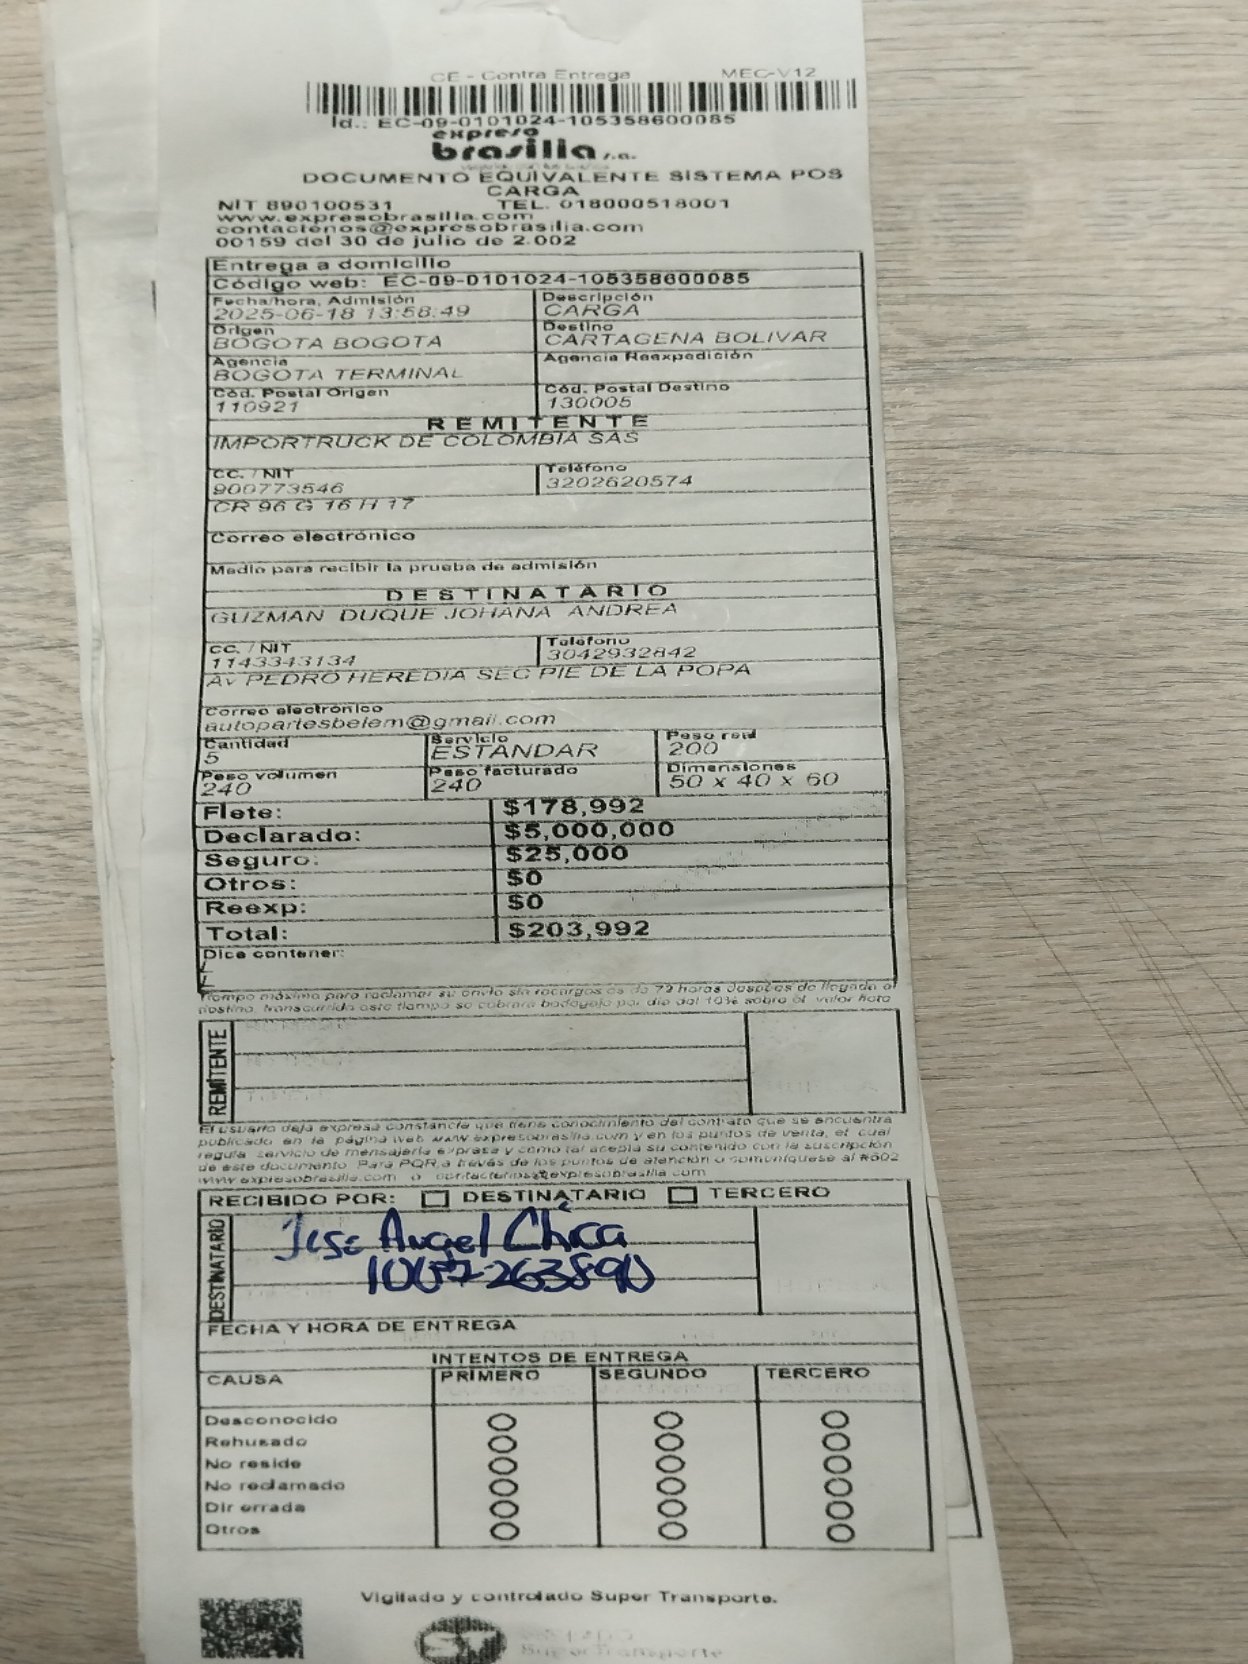 CE - Contra Entrega MEC-V12
Id.: EC-09-0101024-105358600085
expreso
brasilia s.a.
DOCUMENTO EQUIVALENTE SISTEMA POS
CARGA
NIT 890100531 TEL. 018000518001
www.expresobrasilia.com
contactenos@expresobrasilia.com
00159 del 30 de julio de 2.002
Entrega a domicilio
Código web: EC-09-0101024-105358600085
Fecha/hora, Admisión Descripción
2025-06-18 13:58:49 CARGA
Origen Destino
BOGOTA BOGOTA CARTAGENA BOLIVAR
Agencia Agencia Reexpedición
BOGOTA TERMINAL
Cód. Postal Origen Cód. Postal Destino
110921 130005
REMITENTE
IMPORTRUCK DE COLOMBIA SAS
CC. / NIT Teléfono
900773546 3202620574
CR 96 G 16 H 17
Correo electrónico
Medio para recibir la prueba de admisión
DESTINATARIO
GUZMAN DUQUE JOHANA ANDREA
CC. / NIT Teléfono
1143343134 3042932842
Av PEDRO HEREDIA SEC PIE DE LA POPA
Correo electrónico
autopartesbelem@gmail.com
Cantidad Servicio Peso real
5 ESTANDAR 200
Peso volumen Peso facturado Dimensiones
240 240 50 x 40 x 60
Flete: $178,992
Declarado: $5,000,000
Seguro: $25,000
Otros: $0
Reexp: $0
Total: $203,992
Dice contener:
Tiempo máximo para reclamar su envío sin recargos es de 72 horas después de llegada a
destino, transcurrido este tiempo se cobrara bodegaje por dia del 10% sobre el valor flete
REMITENTE
El usuario deja expresa constancia que tiene conocimiento del contrato que se encuentra
publicado en la página web www.expresobrasilia.com y en los puntos de venta, el cual
regula servicio de mensajería expresa y como tal acepta su contenido con la suscripción
de este documento. Para PQR a través de los puntos de atención o comuníquese al #502
www.expresobrasilia.com o contactenos@expresobrasilia.com
RECIBIDO POR: DESTINATARIO TERCERO
DESTINATARIO
Jose Angel Chica
1007263890
FECHA Y HORA DE ENTREGA
INTENTOS DE ENTREGA
CAUSA PRIMERO SEGUNDO TERCERO
Desconocido
Rehusado
No reside
No reclamado
Dir errada
Otros
Vigilado y controlado Super Transporte.
ST
SuperTransporte